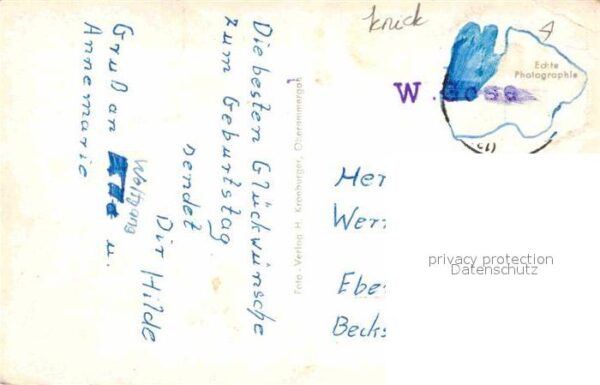 Die besten Glückwünsche
zum Geburtstag
sendet
Dir Hilde
Wolfgang
Gruß an u.
Annemarie
Foto-Verlag H. Kronburger, Oberammergau
knick
4
Echte
Photographie
W.
Her
Wer
Ebe
Becks
privacy protection
Datenschutz